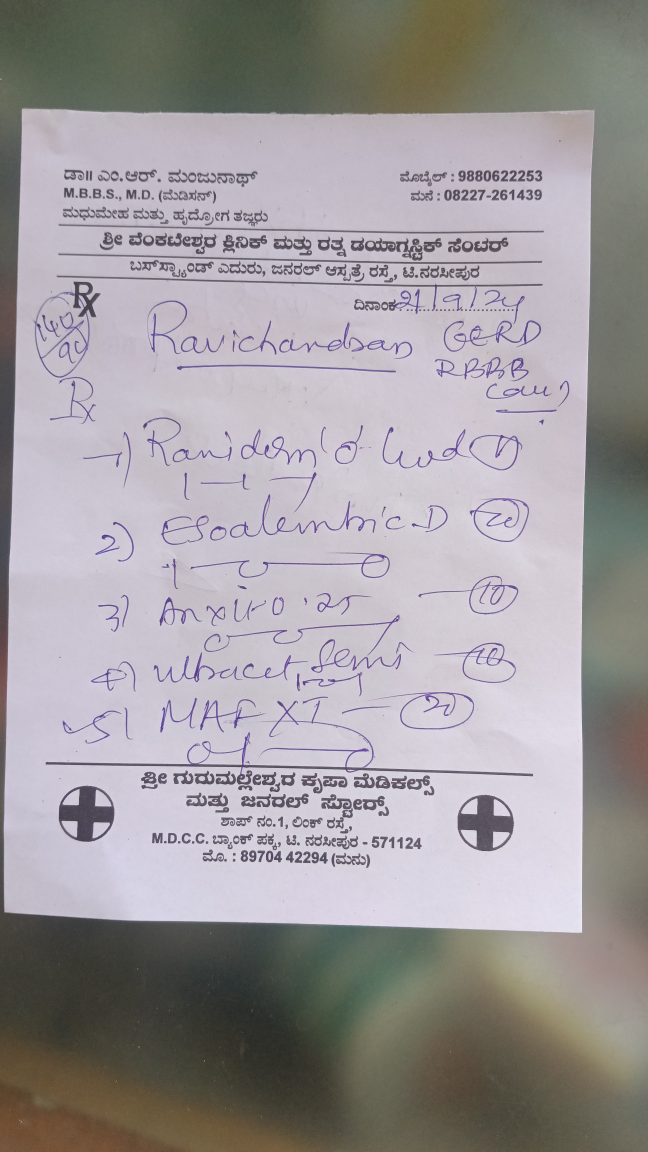 ಡಾ॥ ಎಂ.ಆರ್. ಮಂಜುನಾಥ್
M.B.B.S., M.D. (ಮೆಡಿಸನ್)
ಮಧುಮೇಹ ಮತ್ತು ಹೃದ್ರೋಗ ತಜ್ಞರು
ಮೊಬೈಲ್ : 9880622253
ಮನೆ : 08227-261439
ಶ್ರೀ ವೆಂಕಟೇಶ್ವರ ಕ್ಲಿನಿಕ್ ಮತ್ತು ರತ್ನ ಡಯಾಗ್ನಸ್ಟಿಕ್ ಸೆಂಟರ್
ಬಸ್‌ಸ್ಟ್ಯಾಂಡ್ ಎದುರು, ಜನರಲ್ ಆಸ್ಪತ್ರೆ ರಸ್ತೆ, ಟಿ.ನರಸೀಪುರ
Rx
ದಿನಾಂಕ 21/9/24
140/90
Ravichandran
GERD
RBBB
Rx
1)
2) D 20
3) 10
4) Ultracet Semi 10
5) MAF XT 20
ಶ್ರೀ ಗುರುಮಲ್ಲೇಶ್ವರ ಕೃಪಾ ಮೆಡಿಕಲ್ಸ್
ಮತ್ತು ಜನರಲ್ ಸ್ಟೋರ್ಸ್
ಶಾಪ್ ನಂ.1, ಲಿಂಕ್ ರಸ್ತೆ,
M.D.C.C. ಬ್ಯಾಂಕ್ ಪಕ್ಕ, ಟಿ. ನರಸೀಪುರ - 571124
ಮೊ. : 89704 42294 (ಮನು)